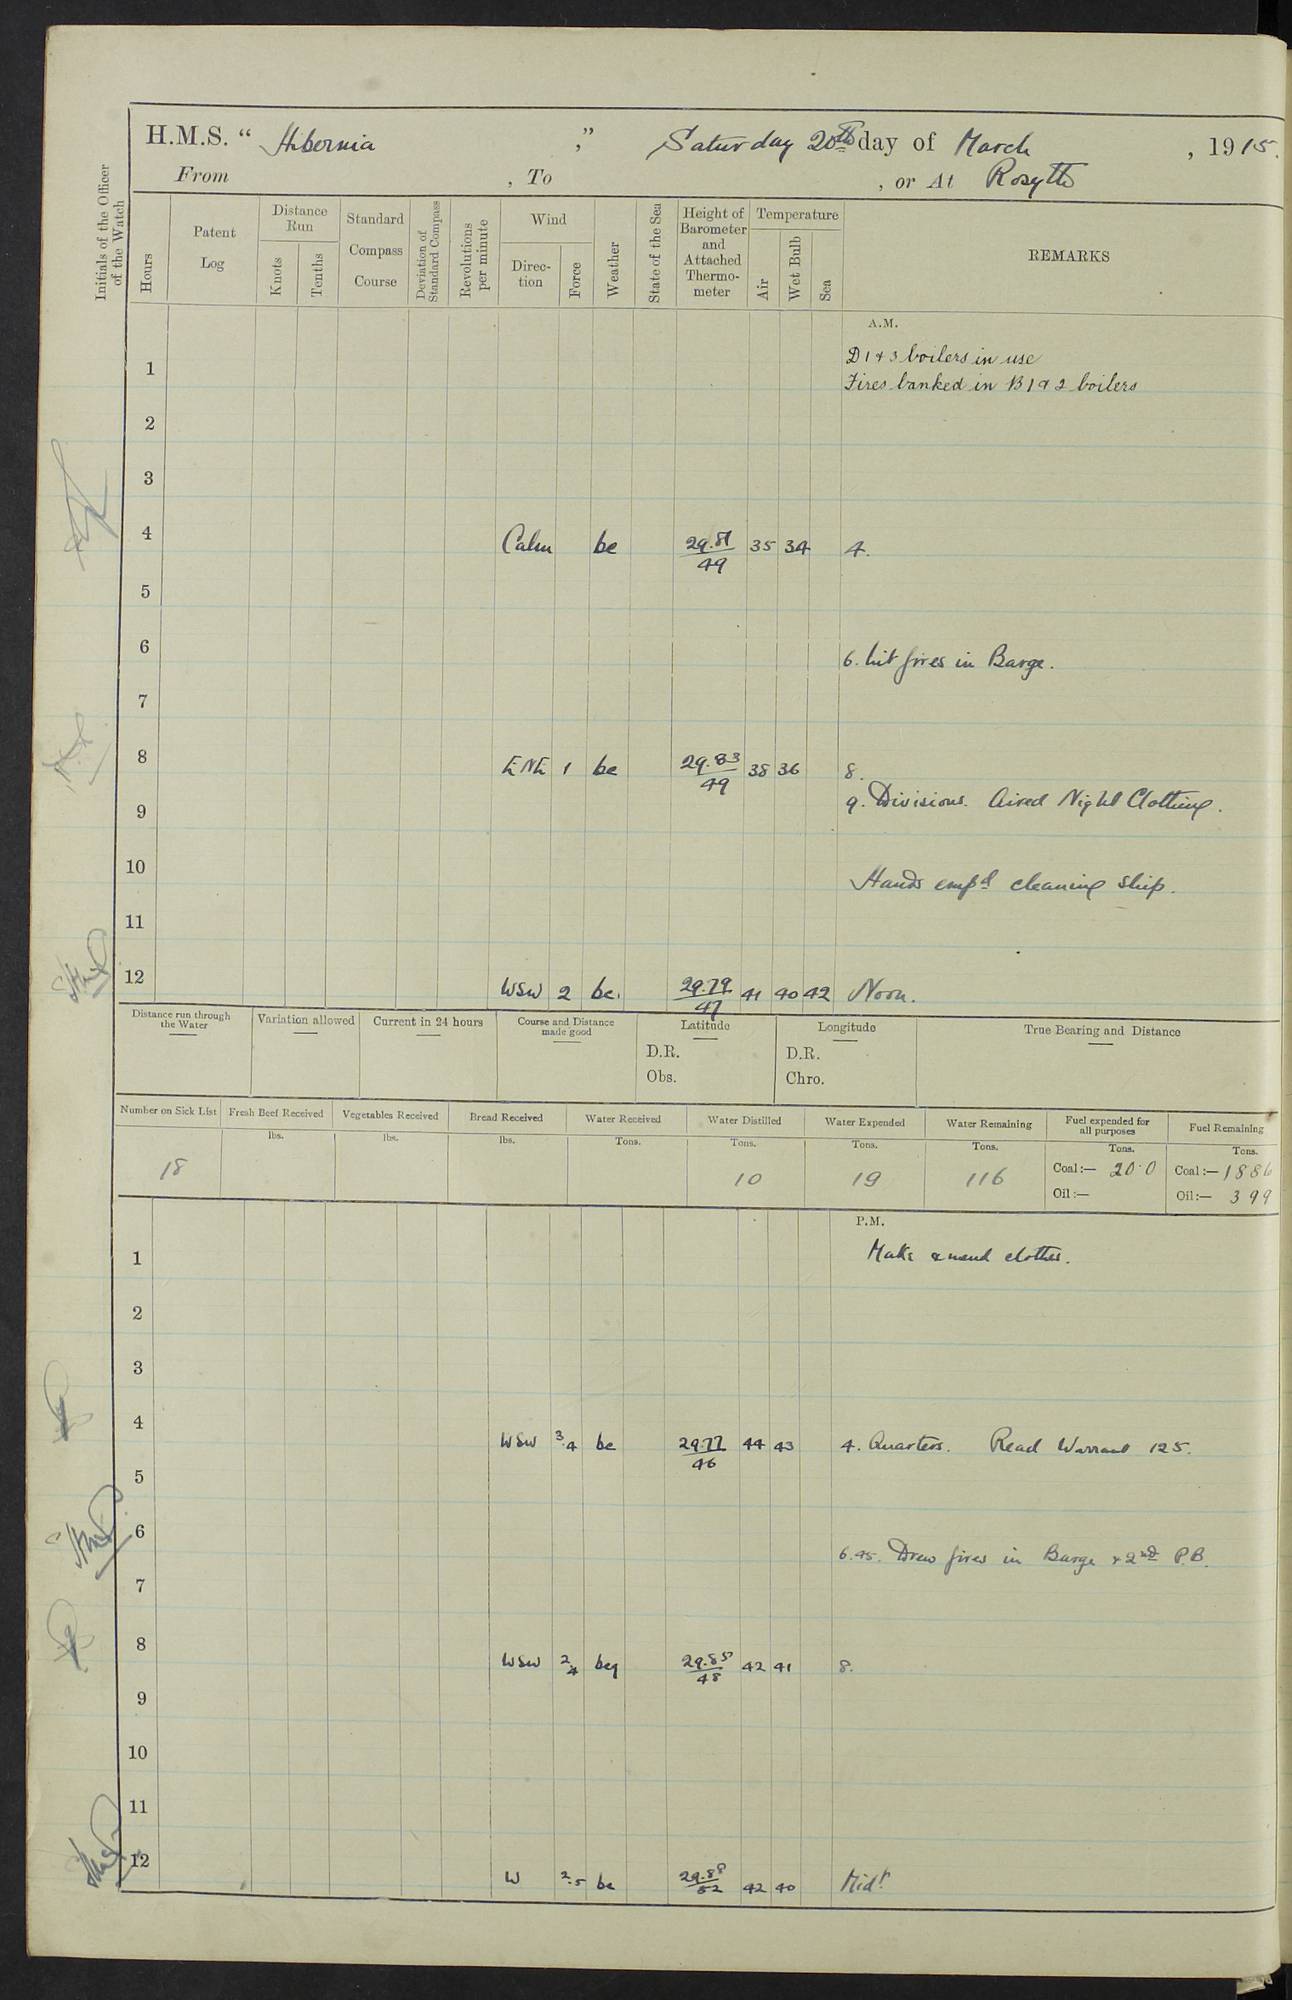 H.M.S. "Hibernia", Saturday 20th day of March, 1915.
From , To , or At Rosyth
Initials of the Officer of the Watch
Hours
Patent Log
Distance Run
Knots
Tenths
Standard Compass Course
Deviation of Standard Compass
Revolutions per minute
Wind
Direction
Force
Weather
State of the Sea
Height of Barometer and Attached Thermometer
Temperature
Air
Wet Bulb
Sea
REMARKS
A.M.
D 1 & 3 boilers in use
1 Fires banked in B 1 & 2 boilers
2
3
4 Calm bc 29.81/49 35 34 4.
5
6 6. Lit fires in Barge.
7
8 ENE 1 bc 29.83/49 38 36 8.
9 9. Divisions. Aired Night Clothing.
10 Hands empd cleaning ship.
11
12 WSW 2 bc. 29.79/47 41 40 42 Noon.
Distance run through the Water
Variation allowed
Current in 24 hours
Course and Distance made good
Latitude
D.R.
Obs.
Longitude
D.R.
Chro.
True Bearing and Distance
Number on Sick List Fresh Beef Received Vegetables Received Bread Received Water Received Water Distilled Water Expended Water Remaining Fuel expended for all purposes Fuel Remaining
lbs. lbs. lbs. Tons. Tons. Tons. Tons. Tons. Tons.
18 10 19 116 Coal:— 20.0 Coal:— 1886
Oil:— Oil:— 399
P.M.
1 Make & mend clothes.
2
3
4 WSW 3.4 bc 29.77/46 44 43 4. Quarters. Read Warrant 125.
5
6 6.45. Drew fires in Barge & 2nd P.B.
7
8 WSW 2.4 bcq 29.85/48 42 41 8.
9
10
11
12 W 2.5 bc 29.88/52 42 40 Midt